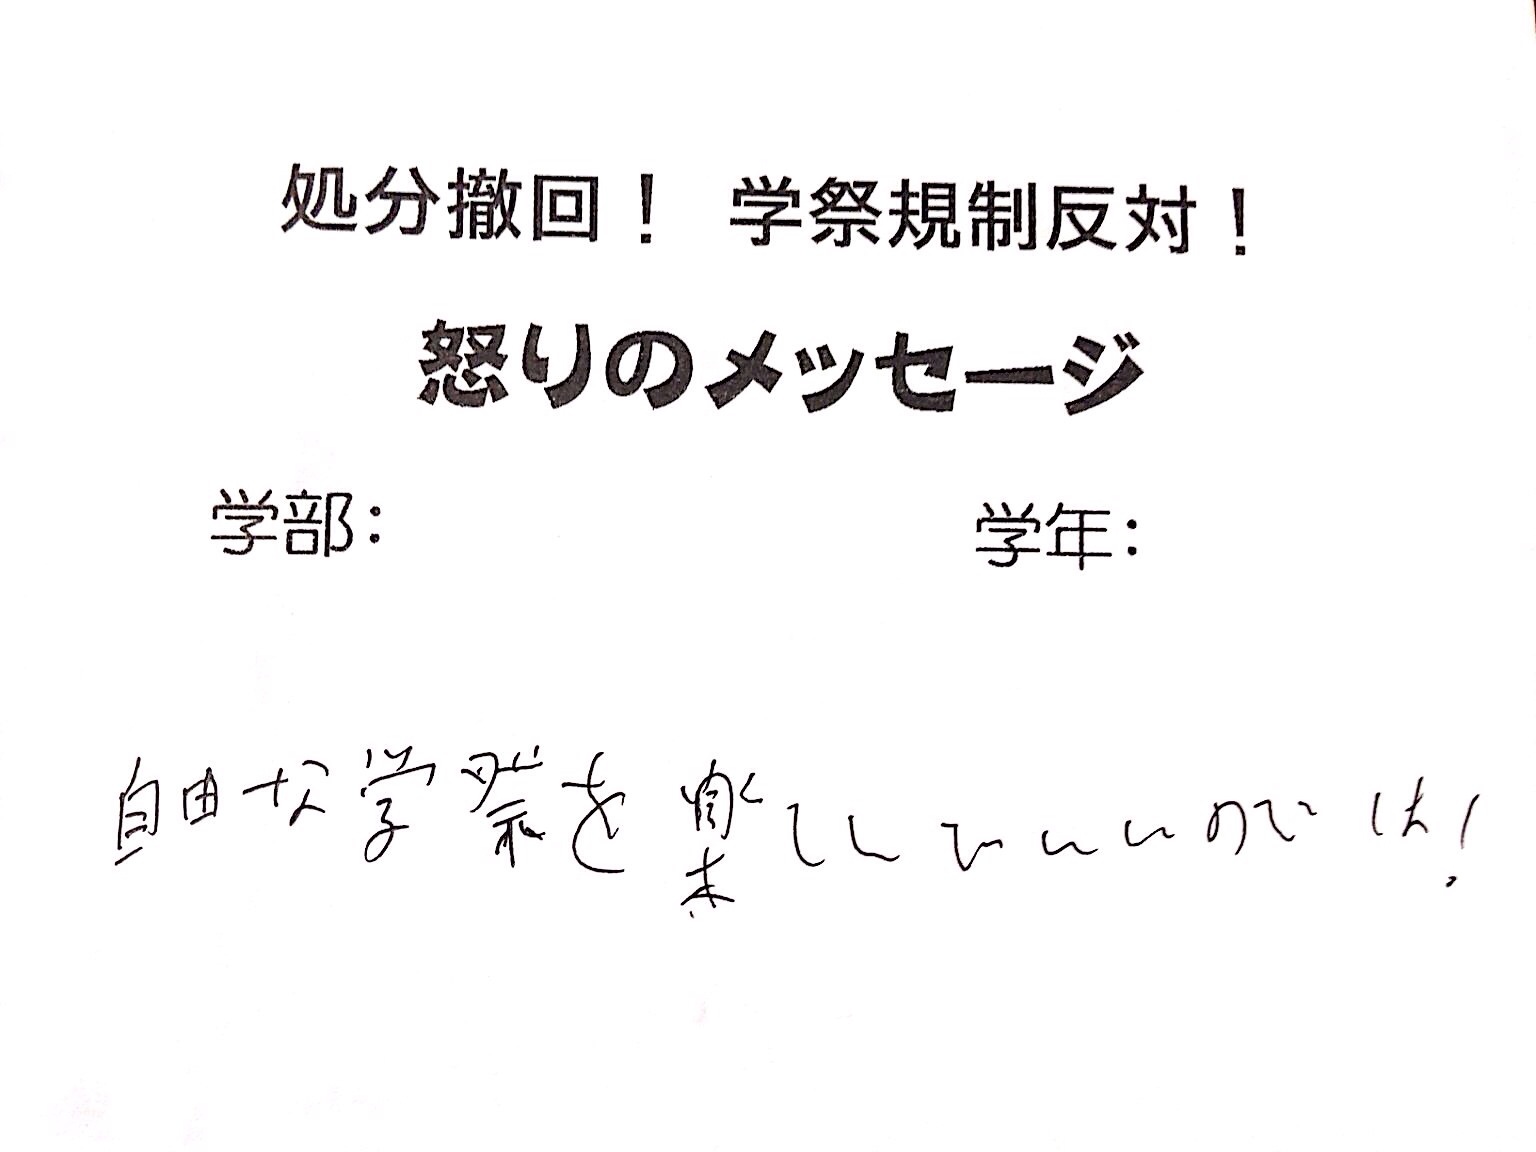 処分撤回! 学祭規制反対!
怒りのメッセージ
学部: 学年:
自由な学祭を楽しんでいいのでは!